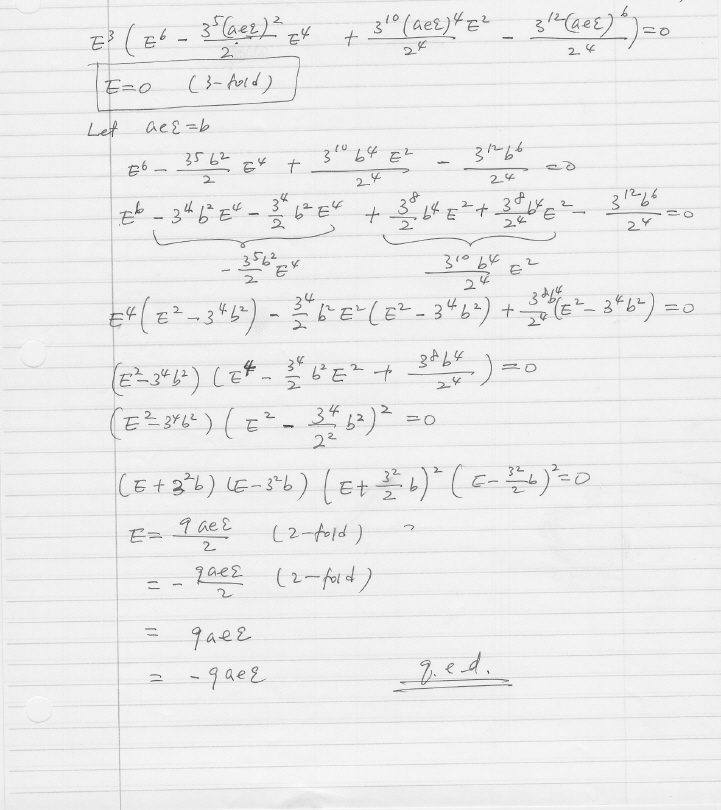 E³ ( E⁶ - 3⁵(aeƐ)²/2 E⁴ + 3¹⁰(aeƐ)⁴E²/2⁴ - 3¹²(aeƐ)⁶/2⁴ ) = 0
E=0 (3-fold)
Let aeƐ = b
E⁶ - 3⁵b²/2 E⁴ + 3¹⁰b⁴E²/2⁴ - 3¹²b⁶/2⁴ = 0
E⁶ - 3⁴b²E⁴ - 3⁴/2 b²E⁴ + 3⁸/2 b⁴E² + 3⁸/2⁴ b⁴E² - 3¹²b⁶/2⁴ = 0
- 3⁵b²/2 E⁴ 3¹⁰b⁴/2⁴ E²
E⁴(E² - 3⁴b²) - 3⁴/2 b²E²(E² - 3⁴b²) + 3⁸b⁴/2⁴ (E² - 3⁴b²) = 0
(E² - 3⁴b²) (E⁴ - 3⁴/2 b²E² + 3⁸b⁴/2⁴) = 0
(E² - 3⁴b²) (E² - 3⁴/2² b²)² = 0
(E + 3²b) (E - 3²b) (E + 3²/2 b)² (E - 3²/2 b)² = 0
E = 9aeƐ/2 (2-fold)
= - 9aeƐ/2 (2-fold)
= 9aeƐ
= -9aeƐ q.e.d.